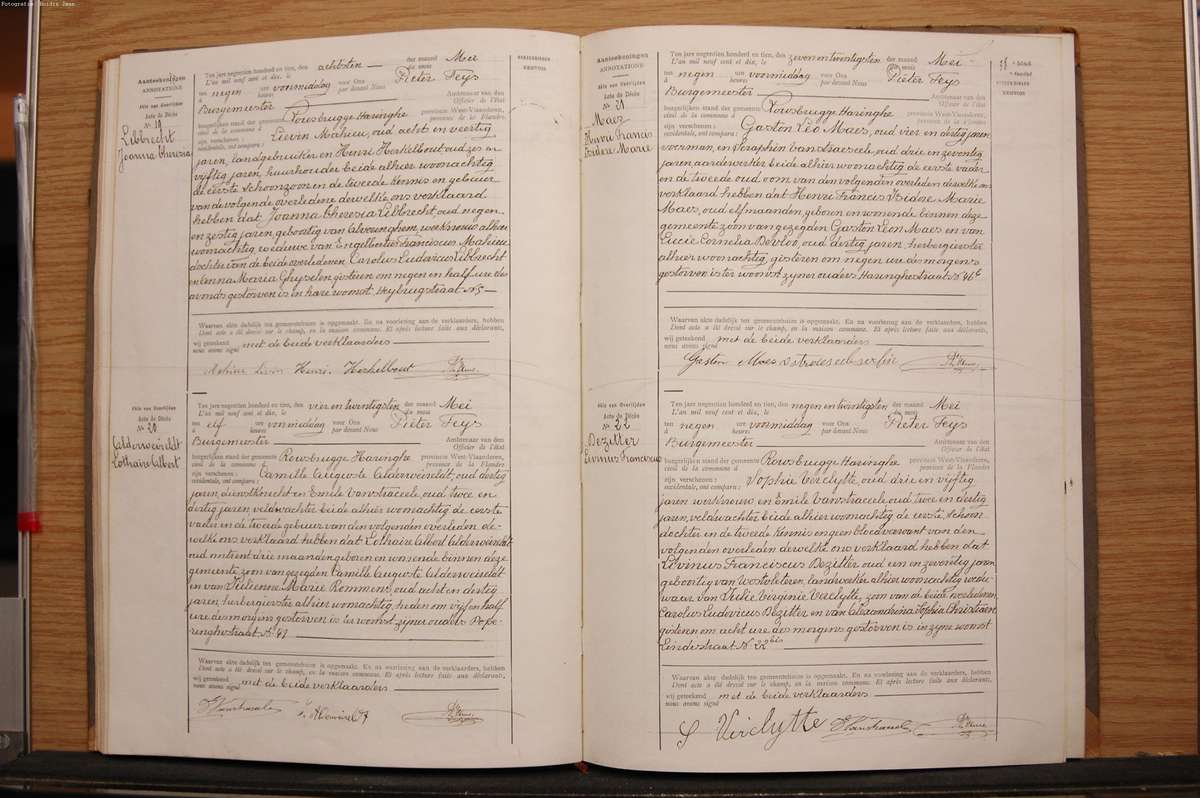 Fotografie: Boidin Jean
Aanteekeningen
ANNOTATIONS
Akte van Overlijden
Acte de Décès
N. 19
Libbrecht
Joanna Theresia
Ten jare negentien honderd en tien, den achtsten der maand Mei
L'an mil neuf cent et dix, le du mois
ten negen ure voormiddag voor Ons Pieter Feys
à heures par devant Nous
Burgemeester Ambtenaar van den
Officier de l'état
burgerlijken stand der gemeente Rousbrugge Haringhe provincie West-Vlaanderen,
civil de la commune d province de la Flandre
zijn verschenen : Lievin Mahieu, oud acht en veertig
occidentale, ont comparu :
jaren, landgebruiker en Henri Herkelbout oud zes en
vijftig jaren, huurhouder beide alhier woonachtig
de eerste schoonzoon en de tweede kennis en gebuur
van de volgende overledene dewelke ons verklaard
hebben dat Joanna Theresia Libbrecht, oud negen
en zestig jaren, geboortig van Alveringhem, werkvrouw alhier
woonachtig, weduwe van Engelbertus Franciscus Mahieu
dochter van de beide overledenen Carolus Ludovicus Libbrecht
en Anna Maria Ghyselen, gisteren om negen en half ure des
avonds gestorven is in hare woonst, Heybrugstraat N. 5
Waarvan akte dadelijk ten gemeentehuize is opgemaakt. En na voorlezing aan de verklaarders, hebben
Dont acte a été dressé sur le champ, en la maison commune. Et après lecture faite aux déclarants,
wij geteekend met de beide verklaarders
nous avons signé
Mahieu Livin Henri. Herkelbout
Akte van Overlijden
Acte de Décès
N. 20
Alderweireldt
Lothaire Albert
Ten jare negentien honderd en tien, den vier en twintigsten der maand Mei
L'an mil neuf cent et dix, le du mois
ten elf ure voormiddag voor Ons Pieter Feys
à heures par devant Nous
Burgemeester Ambtenaar van den
Officier de l'état
burgerlijken stand der gemeente Rousbrugge Haringhe provincie West-Vlaanderen,
civil de la commune d province de la Flandre
zijn verschenen : Camille Auguste Alderweireldt, oud dertig
occidentale, ont comparu :
jaren, dienstknecht en Emile Vanstraceele, oud twee en
dertig jaren, veldwachter beide alhier woonachtig de eerste
vader en de tweede gebuur van den volgenden overleden de-
welke ons verklaard hebben dat Lothaire Albert Alderweireldt
oud omtrent drie maanden geboren en wonende binnen deze
gemeente zoon van gezegden Camille Auguste Alderweireldt
en van Julienne Marie Rommens, oud acht en dertig
jaren, herbergierster alhier woonachtig, heden om vijf en half
ure des morgens gestorven is ter woonst zijner ouders Pope-
ringhestraat N. 41
Waarvan akte dadelijk ten gemeentehuize is opgemaakt. En na voorlezing aan de verklaarders, hebben
Dont acte a été dressé sur le champ, en la maison commune. Et après lecture faite aux déclarants,
wij geteekend met de beide verklaarders
nous avons signé
Aanteekeningen
ANNOTATIONS
Akte van Overlijden
Acte de Décès
N. 21
Maes
Henri Francis
Isidore Marie
Ten jare negentien honderd en tien, den zeven en twintigsten der maand Mei
L'an mil neuf cent et dix, le du mois
ten negen ure voormiddag voor Ons Pieter Feys
à heures par devant Nous
Burgemeester Ambtenaar van den
Officier de l'état
burgerlijken stand der gemeente Rousbrugge Haringhe provincie West-Vlaanderen,
civil de la commune d province de la Flandre
zijn verschenen : Gaston Léo Maes, oud vier en dertig jaren,
occidentale, ont comparu :
voerman, en Seraphin Van Isacsele, oud drie en zeventig
jaren aardewerker beide alhier woonachtig de eerste vader
en de tweede oud oom van den volgenden overleden dewelke ons
verklaard hebben dat Henri Francis Isidore Marie
Maes, oud elf maanden, geboren en wonende binnen deze
gemeente zoon van gezegden Gaston Leon Maes en van
Lucie Cornelia Devloo, oud dertig jaren, herbergierster
alhier woonachtig, gisteren om negen ure des morgens
gestorven is ter woonst zijner ouders, Haringhestraat N. 46
Waarvan akte dadelijk ten gemeentehuize is opgemaakt. En na voorlezing aan de verklaarders, hebben
Dont acte a été dressé sur le champ, en la maison commune. Et après lecture faite aux déclarants,
wij geteekend met de beide verklaarders
nous avons signé
Gaston Maes
Akte van Overlijden
Acte de Décès
N. 22
Dezitter
Livinus Franciscus
Ten jare negentien honderd en tien, den negen en twintigsten der maand Mei
L'an mil neuf cent et dix, le du mois
ten negen ure voormiddag voor Ons Pieter Feys
à heures par devant Nous
Burgemeester Ambtenaar van den
Officier de l'état
burgerlijken stand der gemeente Rousbrugge Haringhe provincie West-Vlaanderen,
civil de la commune d province de la Flandre
zijn verschenen : Sophie Verclytte, oud drie en vijftig
occidentale, ont comparu :
jaren werkvrouw en Emile Vanstraceele oud twee en dertig
jaren, veldwachter beide alhier woonachtig de eerste, schoon-
dochter en de tweede kennis en geen bloedverwant van den
volgenden overleden dewelke ons verklaard hebben dat
Livinus Franciscus Dezitter oud een en zeventig jaren,
geboortig van Westvleteren, landwerker alhier woonachtig wedu-
waar van Julie Virginie Verclytte, zoon van de beide overledenen
Carolus Ludovicus Dezitter en van Alexandrina Sophia Christiaen
gisteren om acht ure des morgens gestorven is in zijne woonst
Lindestraat N. 22 bis
Waarvan akte dadelijk ten gemeentehuize is opgemaakt. En na voorlezing aan de verklaarders, hebben
Dont acte a été dressé sur le champ, en la maison commune. Et après lecture faite aux déclarants,
wij geteekend met de beide verklaarders
nous avons signé
S Verclytte